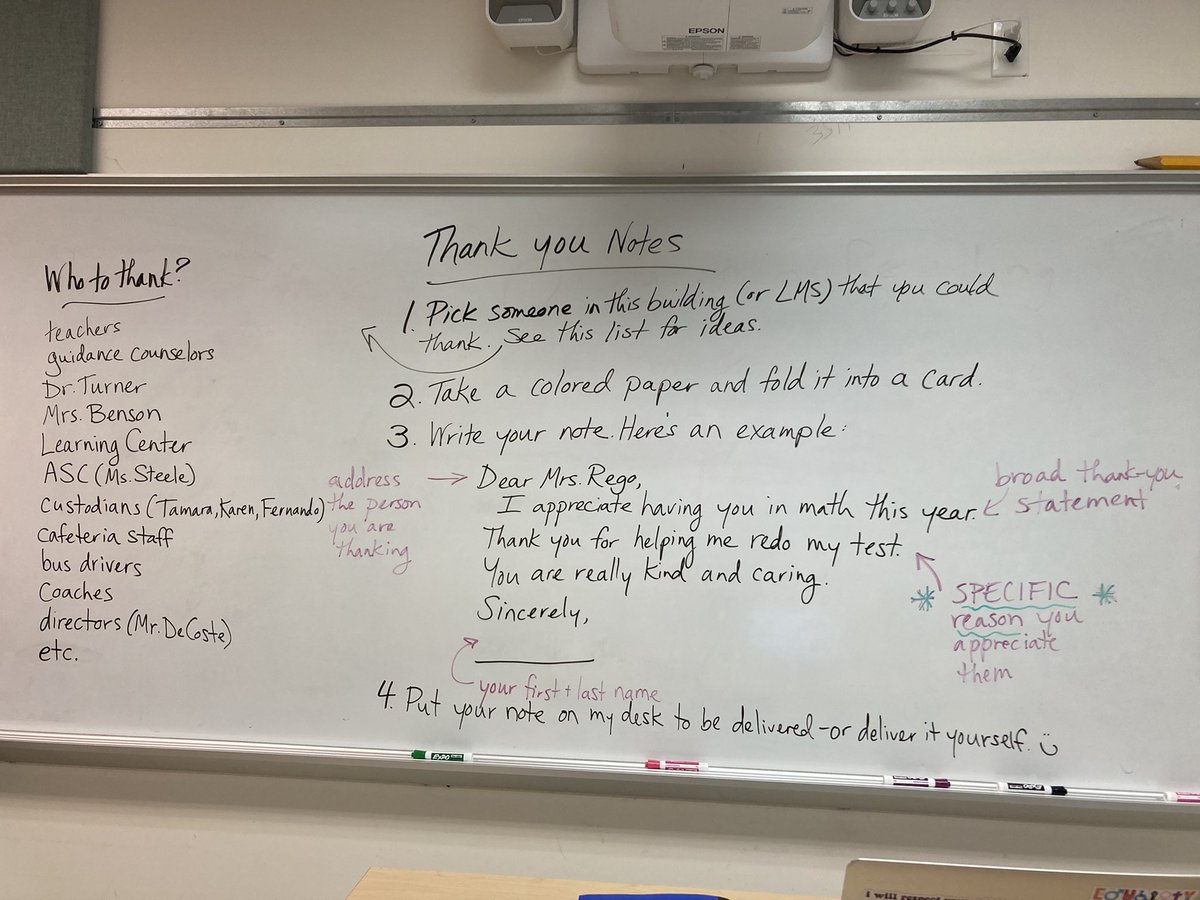 EPSON
Thank you Notes
Who to thank?
teachers
guidance counselors
Dr. Turner
Mrs. Benson
Learning Center
ASC (Ms. Steele)
Custodians (Tamara, Karen, Fernando)
Cafeteria staff
bus drivers
Coaches
directors (Mr. DeCoste)
etc.
1. Pick someone in this building (or LMS) that you could
thank. See this list for ideas.
2. Take a colored paper and fold it into a card.
3. Write your note. Here's an example:
address
the person
you are
thanking
Dear Mrs. Rego,
I appreciate having you in math this year.
Thank you for helping me redo my test.
You are really kind and caring.
Sincerely,
broad thank-you
statement
SPECIFIC
reason you
appreciate
them
your first + last name
4. Put your note on my desk to be delivered - or deliver it yourself.
EXPO
i will respect